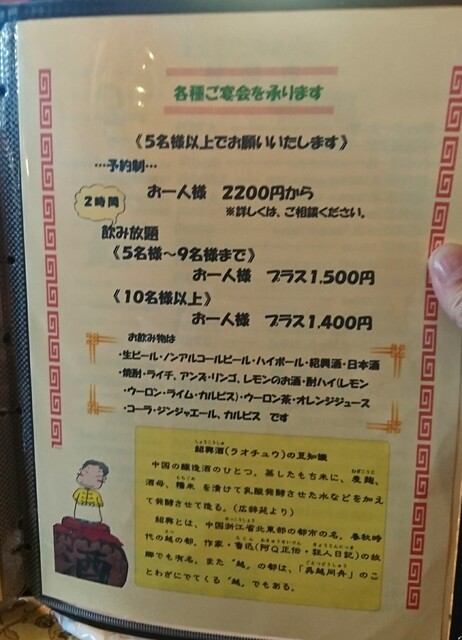 各種ご宴会を承ります
《5名様以上でお願いいたします》
…予約制…
お一人様 2200円から
2時間
※詳しくは、ご相談ください。
飲み放題
《5名様～9名様まで》
お一人様 プラス1.500円
《10名様以上》
お一人様 プラス1.400円
お飲み物は
・生ビール・ノンアルコールビール・ハイボール・紹興酒・日本酒
・焼酎・ライチ、アンズ・リンゴ、レモンのお酒・酎ハイ(レモン
・ウーロン・ライム・カルピス)・ウーロン茶・オレンジジュース
・コーラ・ジンジャエール、カルピス です
しょうこうしゅ
紹興酒(ラオチュウ)の豆知識
むぎこうじ
中国の醸造酒のひとつ。蒸したもち米に、麦麹、
もちごめ
酒母、糯米 を漬けて乳酸発酵させた水などを加え
て発酵させて造る。(広辞苑より)
せっこうしょう
紹興とは、中国浙江省北東部の都市の名。春秋時
代の越の都。作家・魯迅(阿Q正伝・狂人日記)の故
ごえつどうしゅう
郷でも有名。また〝越〟の都は、「呉越同舟」のこ
とわざにでてくる〝越〟でもある。
酒